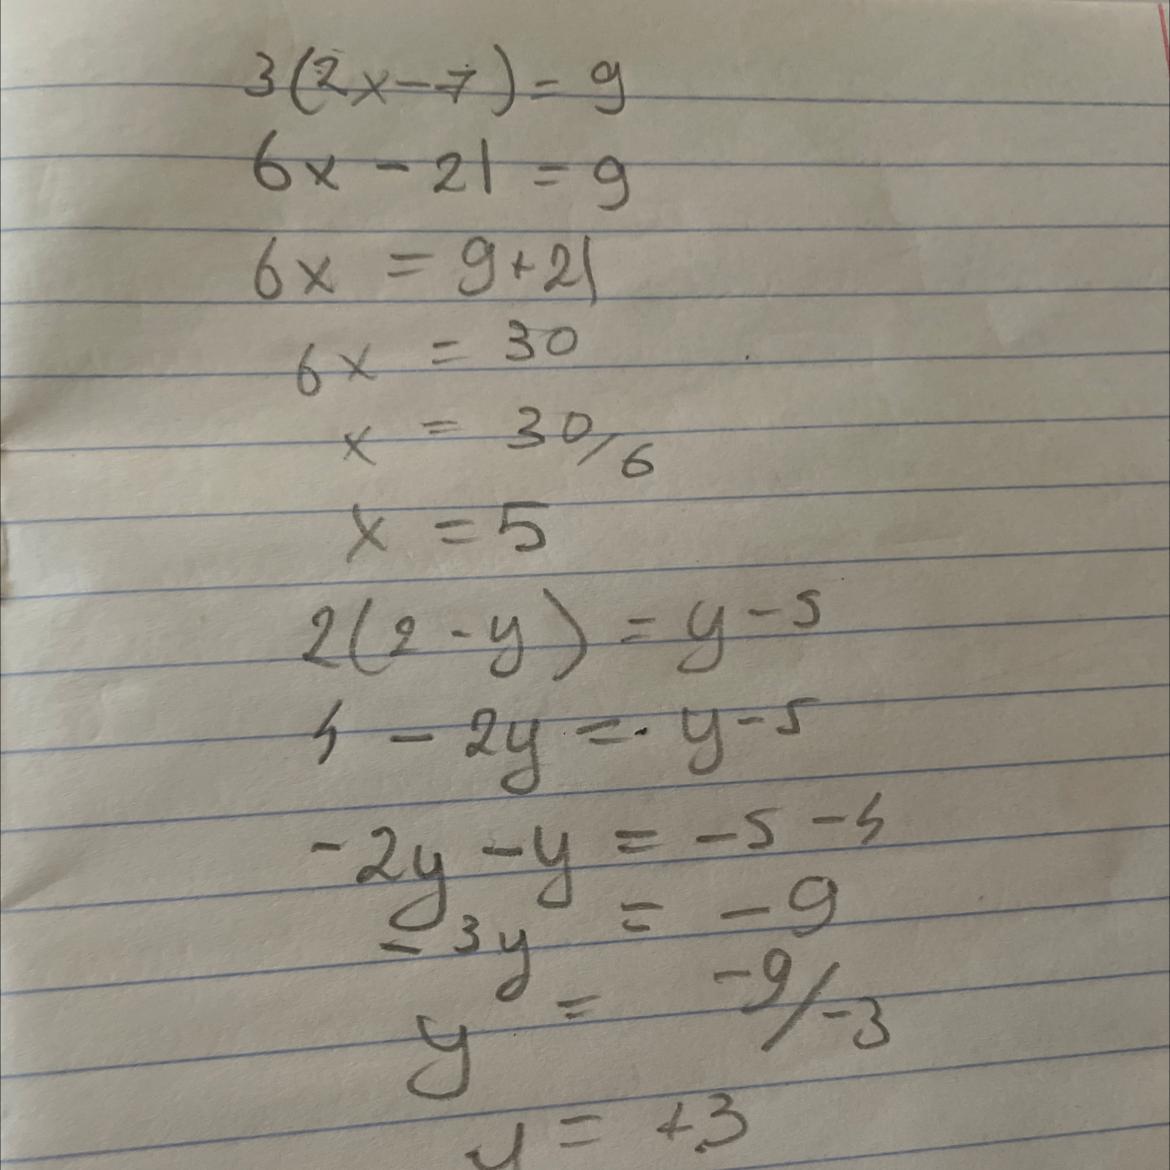 3(2x-7) = 9
6x - 21 = 9
6x = 9+21
6x = 30
x = 30/6
x = 5
2(2-y) = y-5
4 - 2y = y-5
-2y - y = -5 -4
-3y = -9
y = -9/-3
y = +3